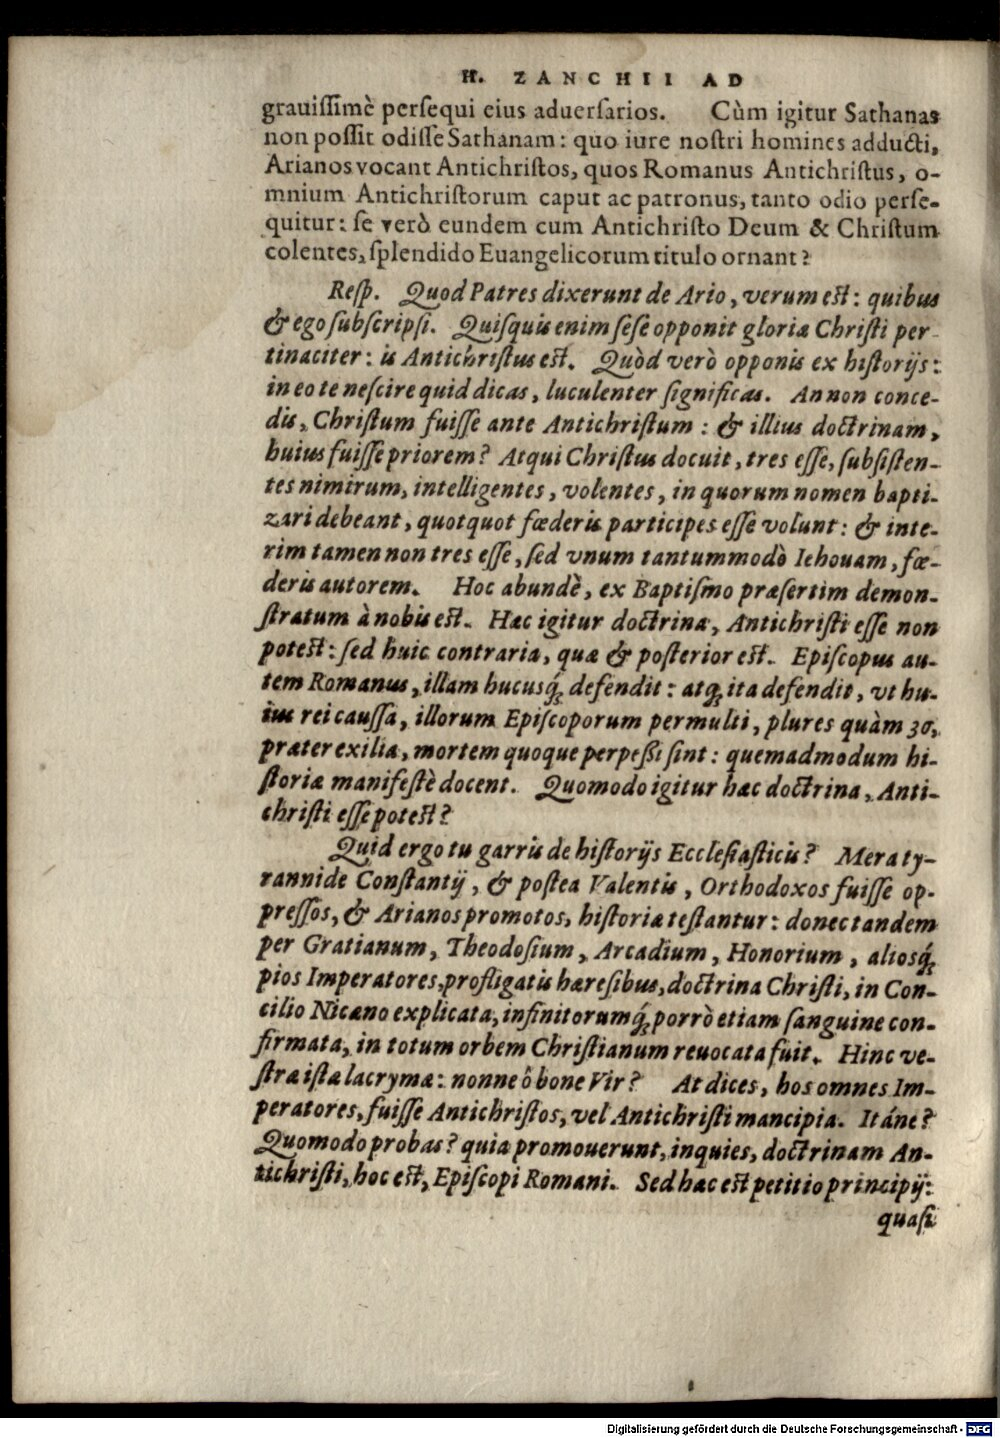 H. ZANCHII AD
grauiſſimè perſequi eius aduerſarios. Cùm igitur Sathanas
non poſſit odiſſe Sathanam: quo iure noſtri homines adducti,
Arianos vocant Antichriſtos, quos Romanus Antichriſtus, o-
mnium Antichriſtorum caput ac patronus, tanto odio perſe-
quitur: ſe verò eundem cum Antichriſto Deum & Chriſtum
colentes, ſplendido Euangelicorum titulo ornant?
Reſp. Quod Patres dixerunt de Ario, verum eſt: quibus
& ego ſubſcripſi. Quiſquis enim ſeſe opponit gloriæ Chriſti per-
tinaciter: is Antichriſtus eſt. Quòd verò opponis ex hiſtorijs:
in eo te neſcire quid dicas, luculenter ſignificas. An non conce-
dis, Chriſtum fuiſſe ante Antichriſtum: & illius doctrinam,
huius fuiſſe priorem? Atqui Chriſtus docuit, tres eſſe, ſubſiſten-
tes nimirum, intelligentes, volentes, in quorum nomen bapti-
zari debeant, quotquot fœderis participes eſſe volunt: & inte-
rim tamen non tres eſſe, ſed vnum tantummodò Iehouam, fœ-
deris autorem. Hoc abundè, ex Baptiſmo præſertim demon-
ſtratum à nobis eſt. Hæc igitur doctrina, Antichriſti eſſe non
poteſt: ſed huic contraria, quæ & poſterior eſt. Epiſcopus au-
tem Romanus, illam hucusq́; defendit: atq́; ita defendit, vt hu-
ius rei cauſſa, illorum Epiſcoporum permulti, plures quàm 30,
præter exilia, mortem quoque perpeßi ſint: quemadmodum hi-
ſtoriæ manifeſtè docent. Quomodo igitur hæc doctrina, Anti-
chriſti eſſe poteſt?
Quid ergo tu garris de hiſtorijs Eccleſiaſticis? Mera ty-
rannide Conſtantij, & poſtea Valentis, Orthodoxos fuiſſe op-
preſſos, & Arianos promotos, hiſtoriæ teſtantur: donec tandem
per Gratianum, Theodoſium, Arcadium, Honorium, aliosq́;
pios Imperatores, profligatis hæreſibus, doctrina Chriſti, in Con-
cilio Nicæno explicata, infinitorumq́; porrò etiam ſanguine con-
firmata, in totum orbem Chriſtianum reuocata fuit. Hinc ve-
ſtræ iſtæ lacrymæ: nonne ô bone Vir? At dices, hos omnes Im-
peratores, fuiſſe Antichriſtos, vel Antichriſti mancipia. Itáne?
Quomodo probas? quia promouerunt, inquies, doctrinam An-
tichriſti, hoc eſt, Epiſcopi Romani. Sed hæc eſt petitio principij:
quaſi
Digitalisierung gefördert durch die Deutsche Forschungsgemeinschaft - DFG